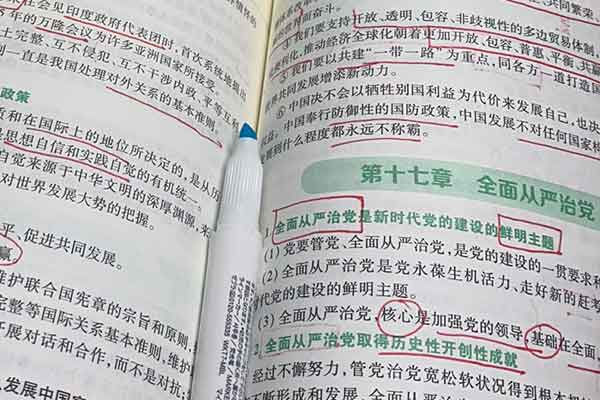 在会见印度政府代表团时，首次系统地提出
年的万隆会议为许多亚洲国家所接受。
土完整、互不侵犯、互不干涉内政、平等互利
则一直是我国处理对外关系的基本准则。
政策
质和在国际上的地位所决定的，是从历
是思想自信和实践自觉的有机统一。
自觉来源于中华文明的深厚渊源，来
对世界发展大势的把握。
平、促进共同发展。
赢
维护联合国宪章的宗旨和原则，
完整等国际关系基本准则，维护
开展对话和合作，而不是对抗；
发展中国家
世界而奋斗。
④我们要支持开放、透明、包容、非歧视性的多边贸易体制，
利化，推动经济全球化朝着更加开放、包容、普惠、平衡、共赢
⑤我们要以共建“一带一路”为重点，同各方一道打造国
世界共同发展增添新动力。
⑥中国决不会以牺牲别国利益为代价来发展自己，也决
权益。中国奉行防御性的国防政策，中国发展不对任何国家构
到什么程度都永远不称霸。
第十七章 全面从严治党
1.全面从严治党是新时代党的建设的鲜明主题
(1) 党要管党、全面从严治党，是党的建设的一贯要求和
(2) 全面从严治党是党永葆生机活力、走好新的赶考
时代党的建设的鲜明主题。
(3) 全面从严治党，核心是加强党的领导，基础在全面，
2.全面从严治党取得历史性开创性成就
经过不懈努力，管党治党宽松软状况得到根本扭
不断形成和发展，全面从严